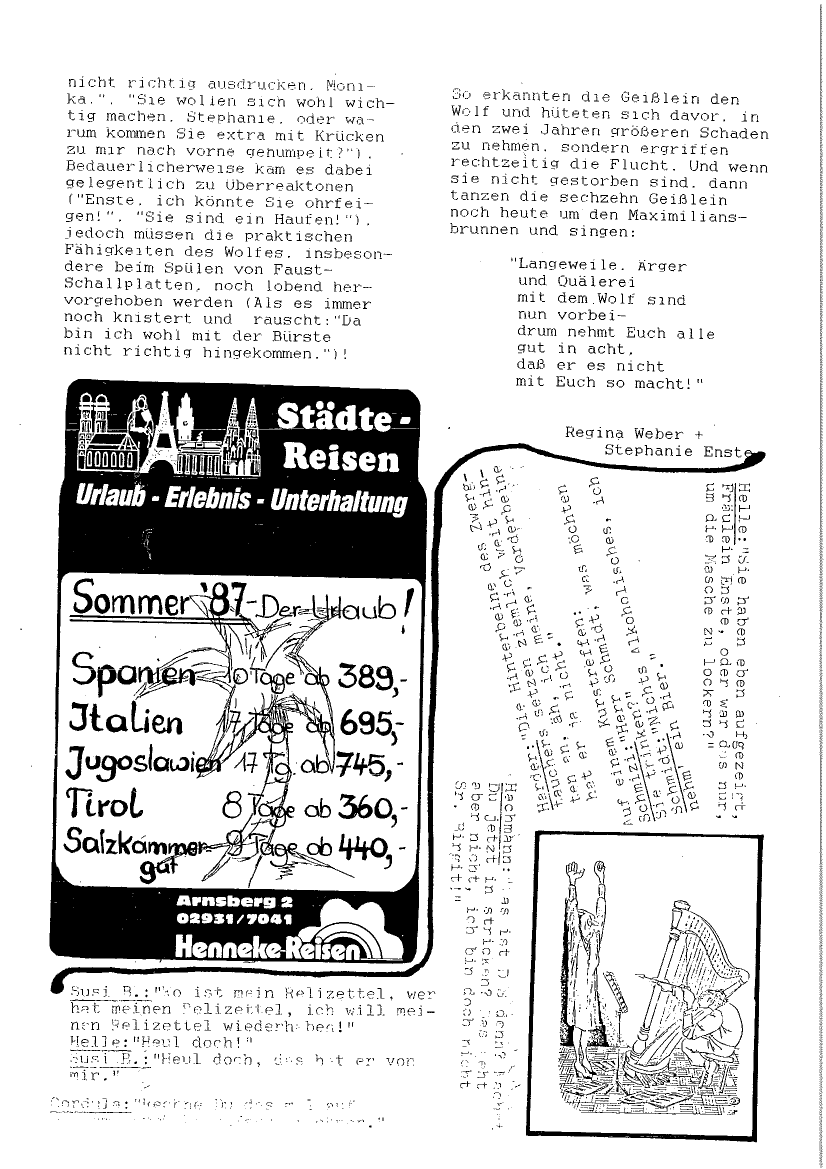 nicht richtig ausdrucken. Moni-
ka.". "Sie wollen sich wohl wich-
tig machen. Stephanie. oder wa-
rum kommen Sie extra mit Krücken
zu mir nach vorne gehumpelt?").
Bedauerlicherweise kam es dabei
gelegentlich zu Überreaktonen
("Enste. ich könnte Sie ohrfei-
gen!". "Sie sind ein Haufen!").
jedoch müssen die praktischen
Fähigkeiten des Wolfes. insbeson-
dere beim Spülen von Faust-
Schallplatten. noch lobend her-
vorgehoben werden (Als es immer
noch knistert und rauscht:"Da
bin ich wohl mit der Bürste
nicht richtig hingekommen.")!
So erkannten die Geißlein den
Wolf und hüteten sich davor. in
den zwei Jahren größeren Schaden
zu nehmen. sondern ergriffen
rechtzeitig die Flucht. Und wenn
sie nicht gestorben sind. dann
tanzen die sechzehn Geißlein
noch heute um den Maximilians-
brunnen und singen:
"Langeweile. Ärger
und Quälerei
mit dem Wolf sind
nun vorbei-
drum nehmt Euch alle
gut in acht.
daß er es nicht
mit Euch so macht!"
Regina Weber +
Stephanie Enste
Städte-
Reisen
Urlaub - Erlebnis - Unterhaltung
Sommer '87-Der Urlaub!
Spanien 10 Tage ab 389,-
Italien 17 Tage ab 695,-
Jugoslawien 17 Tg. ab 745,-
Tirol 8 Tage ab 360,-
Salzkammer- 9 Tage ab 440,-
gut
Arnsberg 2
02931/7041
Henneke-Reisen
Helle:"Sie haben eben aufgezeigt,
Fräulein Enste, oder war das nur,
um die Masche zu lockern?"
Harder:"Die Hinterbeine des Zwerg-
tauchers setzen ziemlich weit hin-
ten an, äh, ich meine, Vorderbeine
hat er ja nicht."
Auf einem Kurstreffen:
Schmizi:"Herr Schmidt, was möchten
Sie trinken?"
Schmidt:"Nichts Alkoholisches, ich
nehm' ein Bier."
Hachmann:"Was ist das denn?
Du jetzt in stricken? Das geht
aber nicht, ich bin doch nicht
Sr. Birgit!"
Susi B.:"Wo ist mein Relizettel, wer
hat meinen Relizettel, ich will mei-
nen Relizettel wiederhaben!"
Helle:"Heul doch!"
Susi B.:"Heul doch, das hat er von
mir."
Cordula:"Rechne Du das mal auf